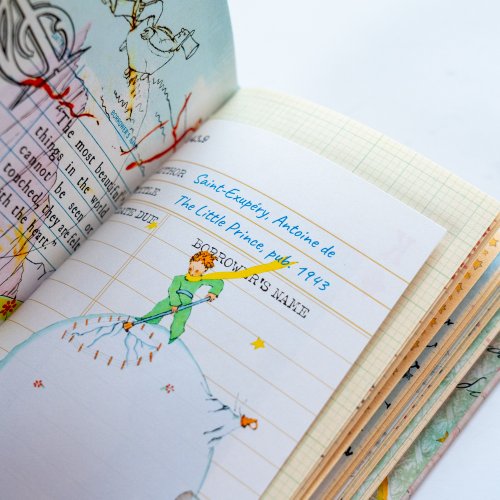 "The most beautiful
things in the world
cannot be seen or
touched, they are felt
with the heart."
BORROWER'S
AUTHOR Saint-Exupéry, Antoine de
TITLE The Little Prince, pub. 1943
DATE DUE
BORROWER'S NAME